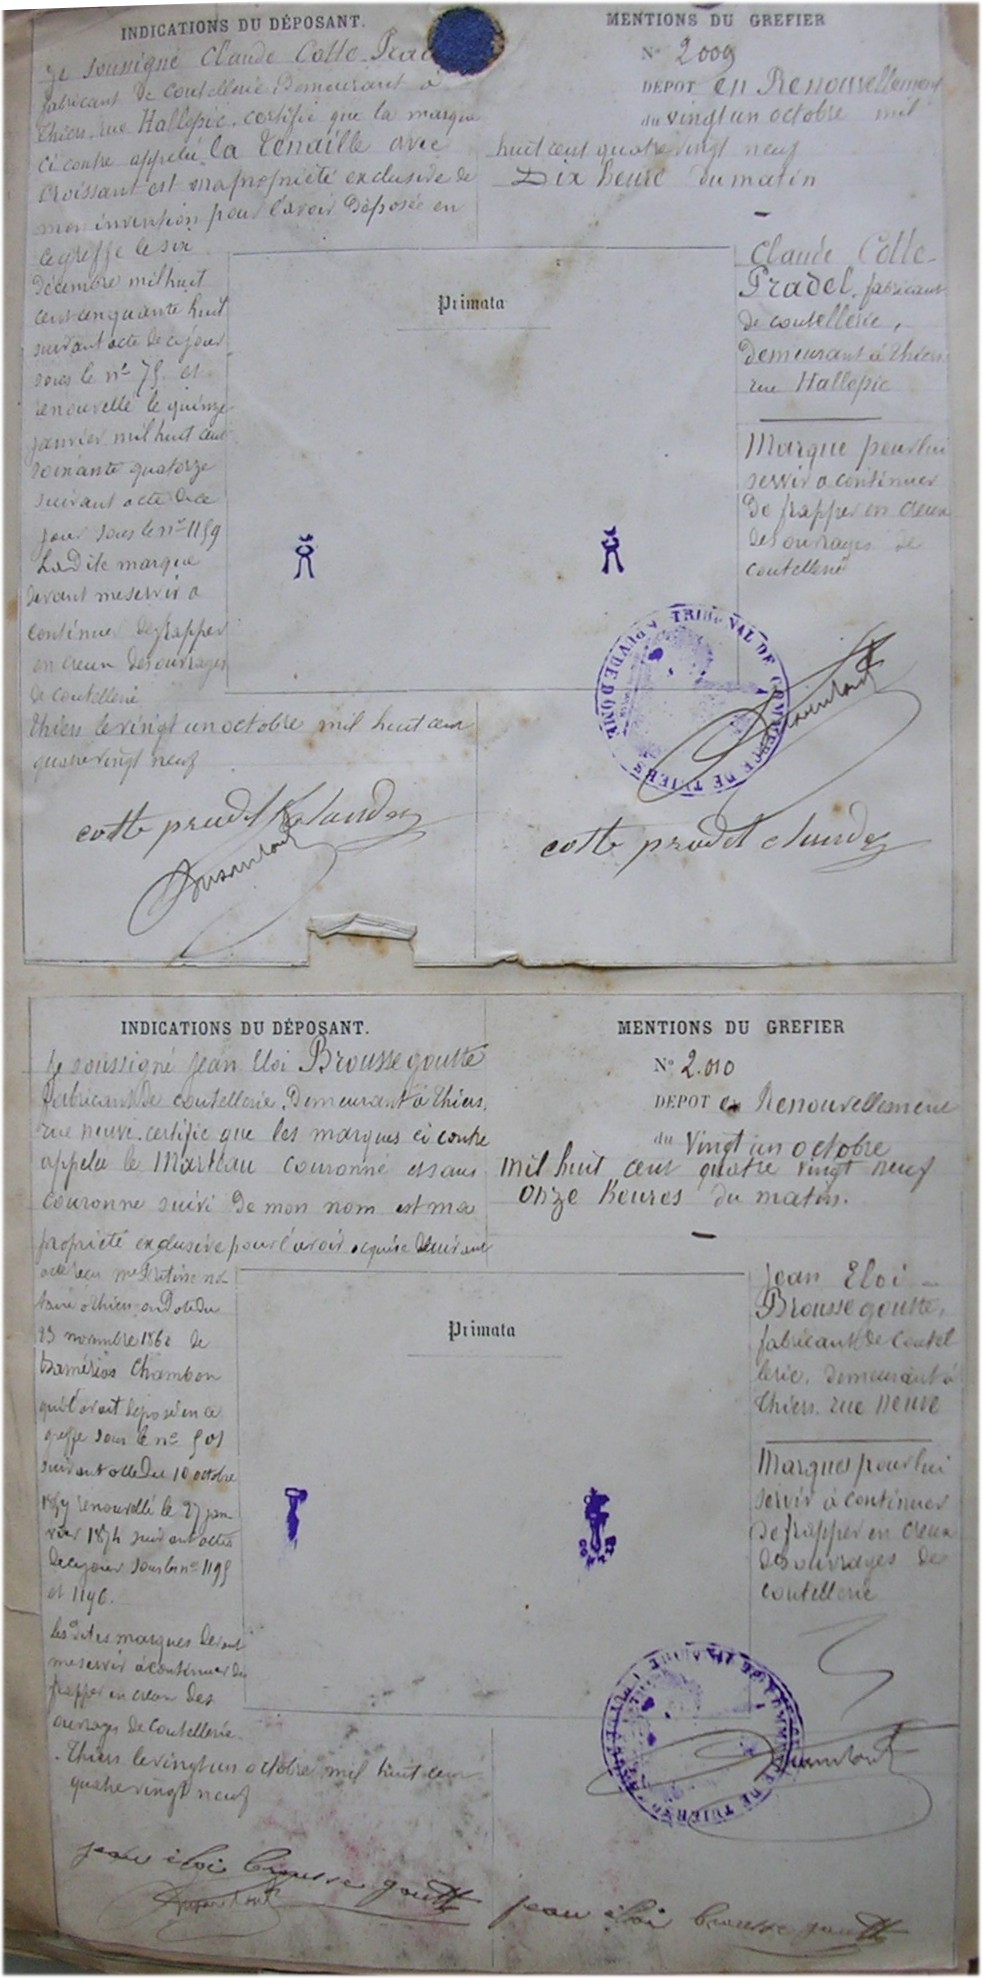 INDICATIONS DU DÉPOSANT.
Je soussigné Claude Cotte-Prad
fabricant de coutellerie, Demeurant à
Thiers, rue Hallepic, certifie que la marque
ci contre appelée la Tenaille avec
croissant est ma propriété exclusive de
mon invention pour l'avoir déposée en
le greffe le six
Décembre mil huit
cent cinquante huit
suivant acte de ce jour
sous le n° 75 et
renouvelle le quinze
janvier mil huit cent
soixante quatorze
suivant acte de ce
jour sous le n° 1159
La dite marque
devant me servir a
continuer de frapper
en creux des ouvrages
de coutellerie
Thiers le vingt un octobre mil huit cent
quatre vingt neuf
cotte pradel claude
MENTIONS DU GREFIER
N° 2009
DÉPOT en Renouvellement
du vingt un octobre mil
huit cent quatre vingt neuf
Dix heure du matin
Primata
Claude Cotte-
Pradel, fabricant
de coutellerie,
demeurant à Thiers
rue Hallepic
Marque pour lui
servir a continuer
de frapper en creux
des ouvrages de
coutellerie
TRIBUNAL DE COMMERCE DE THIERS PUY DE DOME
cotte pradel claude
INDICATIONS DU DÉPOSANT.
Je soussigné Jean Eloi Broussegoutte
fabricant de coutellerie, Demeurant à Thiers,
rue neuve, certifie que les marques ci contre
appelée le Marteau couronné et sans
couronne suivi de mon nom est ma
propriété exclusive pour l'avoir acquise suivant
acte reçu me no
taire a Thiers en date du
23 novembre 1860 de
Chambon
qui l'avait déposé en ce
greffe sous le n° 501
suivant acte du 10 octobre
renouvellé le 27 jan
vier 1874 suivant actes
de ce jour sous les nos 1195
et 1196.
les dites marques devant
me servir à continuer de
frapper en creux des
ouvrages de coutellerie.
Thiers le vingt un octobre mil huit cent
quatre vingt neuf
jean éloi brousse goutte
MENTIONS DU GREFIER
N° 2.010
DEPOT en Renouvellement
du Vingt un octobre
mil huit cent quatre vingt neuf
Onze heures du matin.
Primata
Jean Eloi
Broussegoutte,
fabricant de coutel
lerie, demeurant à
Thiers, rue neuve
Marques pour lui
servir à continuer
de frapper en creux
des ouvrages de
coutellerie
jean éloi brousse goutte